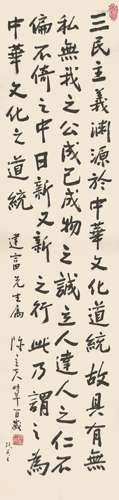 三民主義淵源於中華文化道統故具有無
私無我之公成己成物之誠立人達人之仁不
偏不倚之中日新又新之行此乃謂之為
中華文化之道統
建富先生屬 陳立夫時年百歲